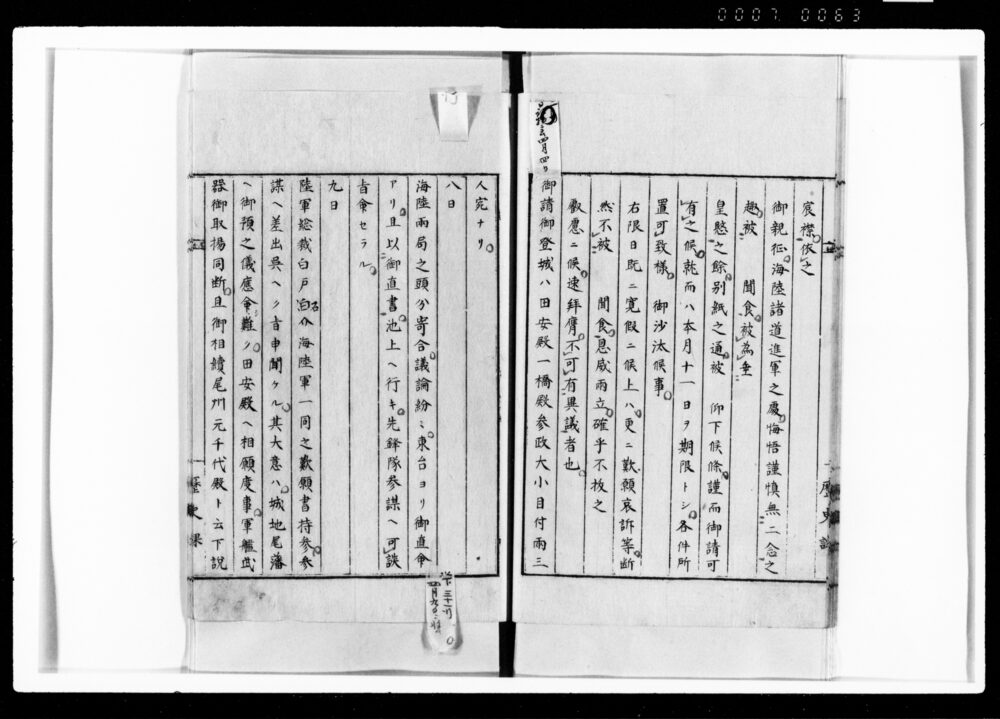 0007 0063
宸襟依之
御親征海陸諸道進軍之處悔悟謹慎無二念之
趣被　聞食被為垂
皇愍之餘別紙之通被　仰下候條謹而御請可
有之候就而ハ本月十一日ヲ期限トシ各件所
置可致樣　御沙汰候事
右限日既ニ寛假ニ候上ハ更ニ歎願哀訴等断
然不被　聞食恩威兩立確乎不抜之
叡慮ニ候速拜膺不可有異議者也
御請御登城ハ田安殿一橋殿参政大小目付兩三
人完ナリ
八日
海陸兩局之頭分寄合議論紛々東台ヨリ御直命
アリ且以御直書池上ヘ行キ先鋒隊参謀ヘ可談
旨命セラル
九日
陸軍総裁白戸石介海陸軍一同之歎願書持参参
謀ヘ差出呉ヘク旨申聞ケル其大意ハ城地尾藩
ヘ御預之儀應命難ク田安殿ヘ相願度事軍艦武
器御取揚同断且御相續尾州元千代殿ト云下説